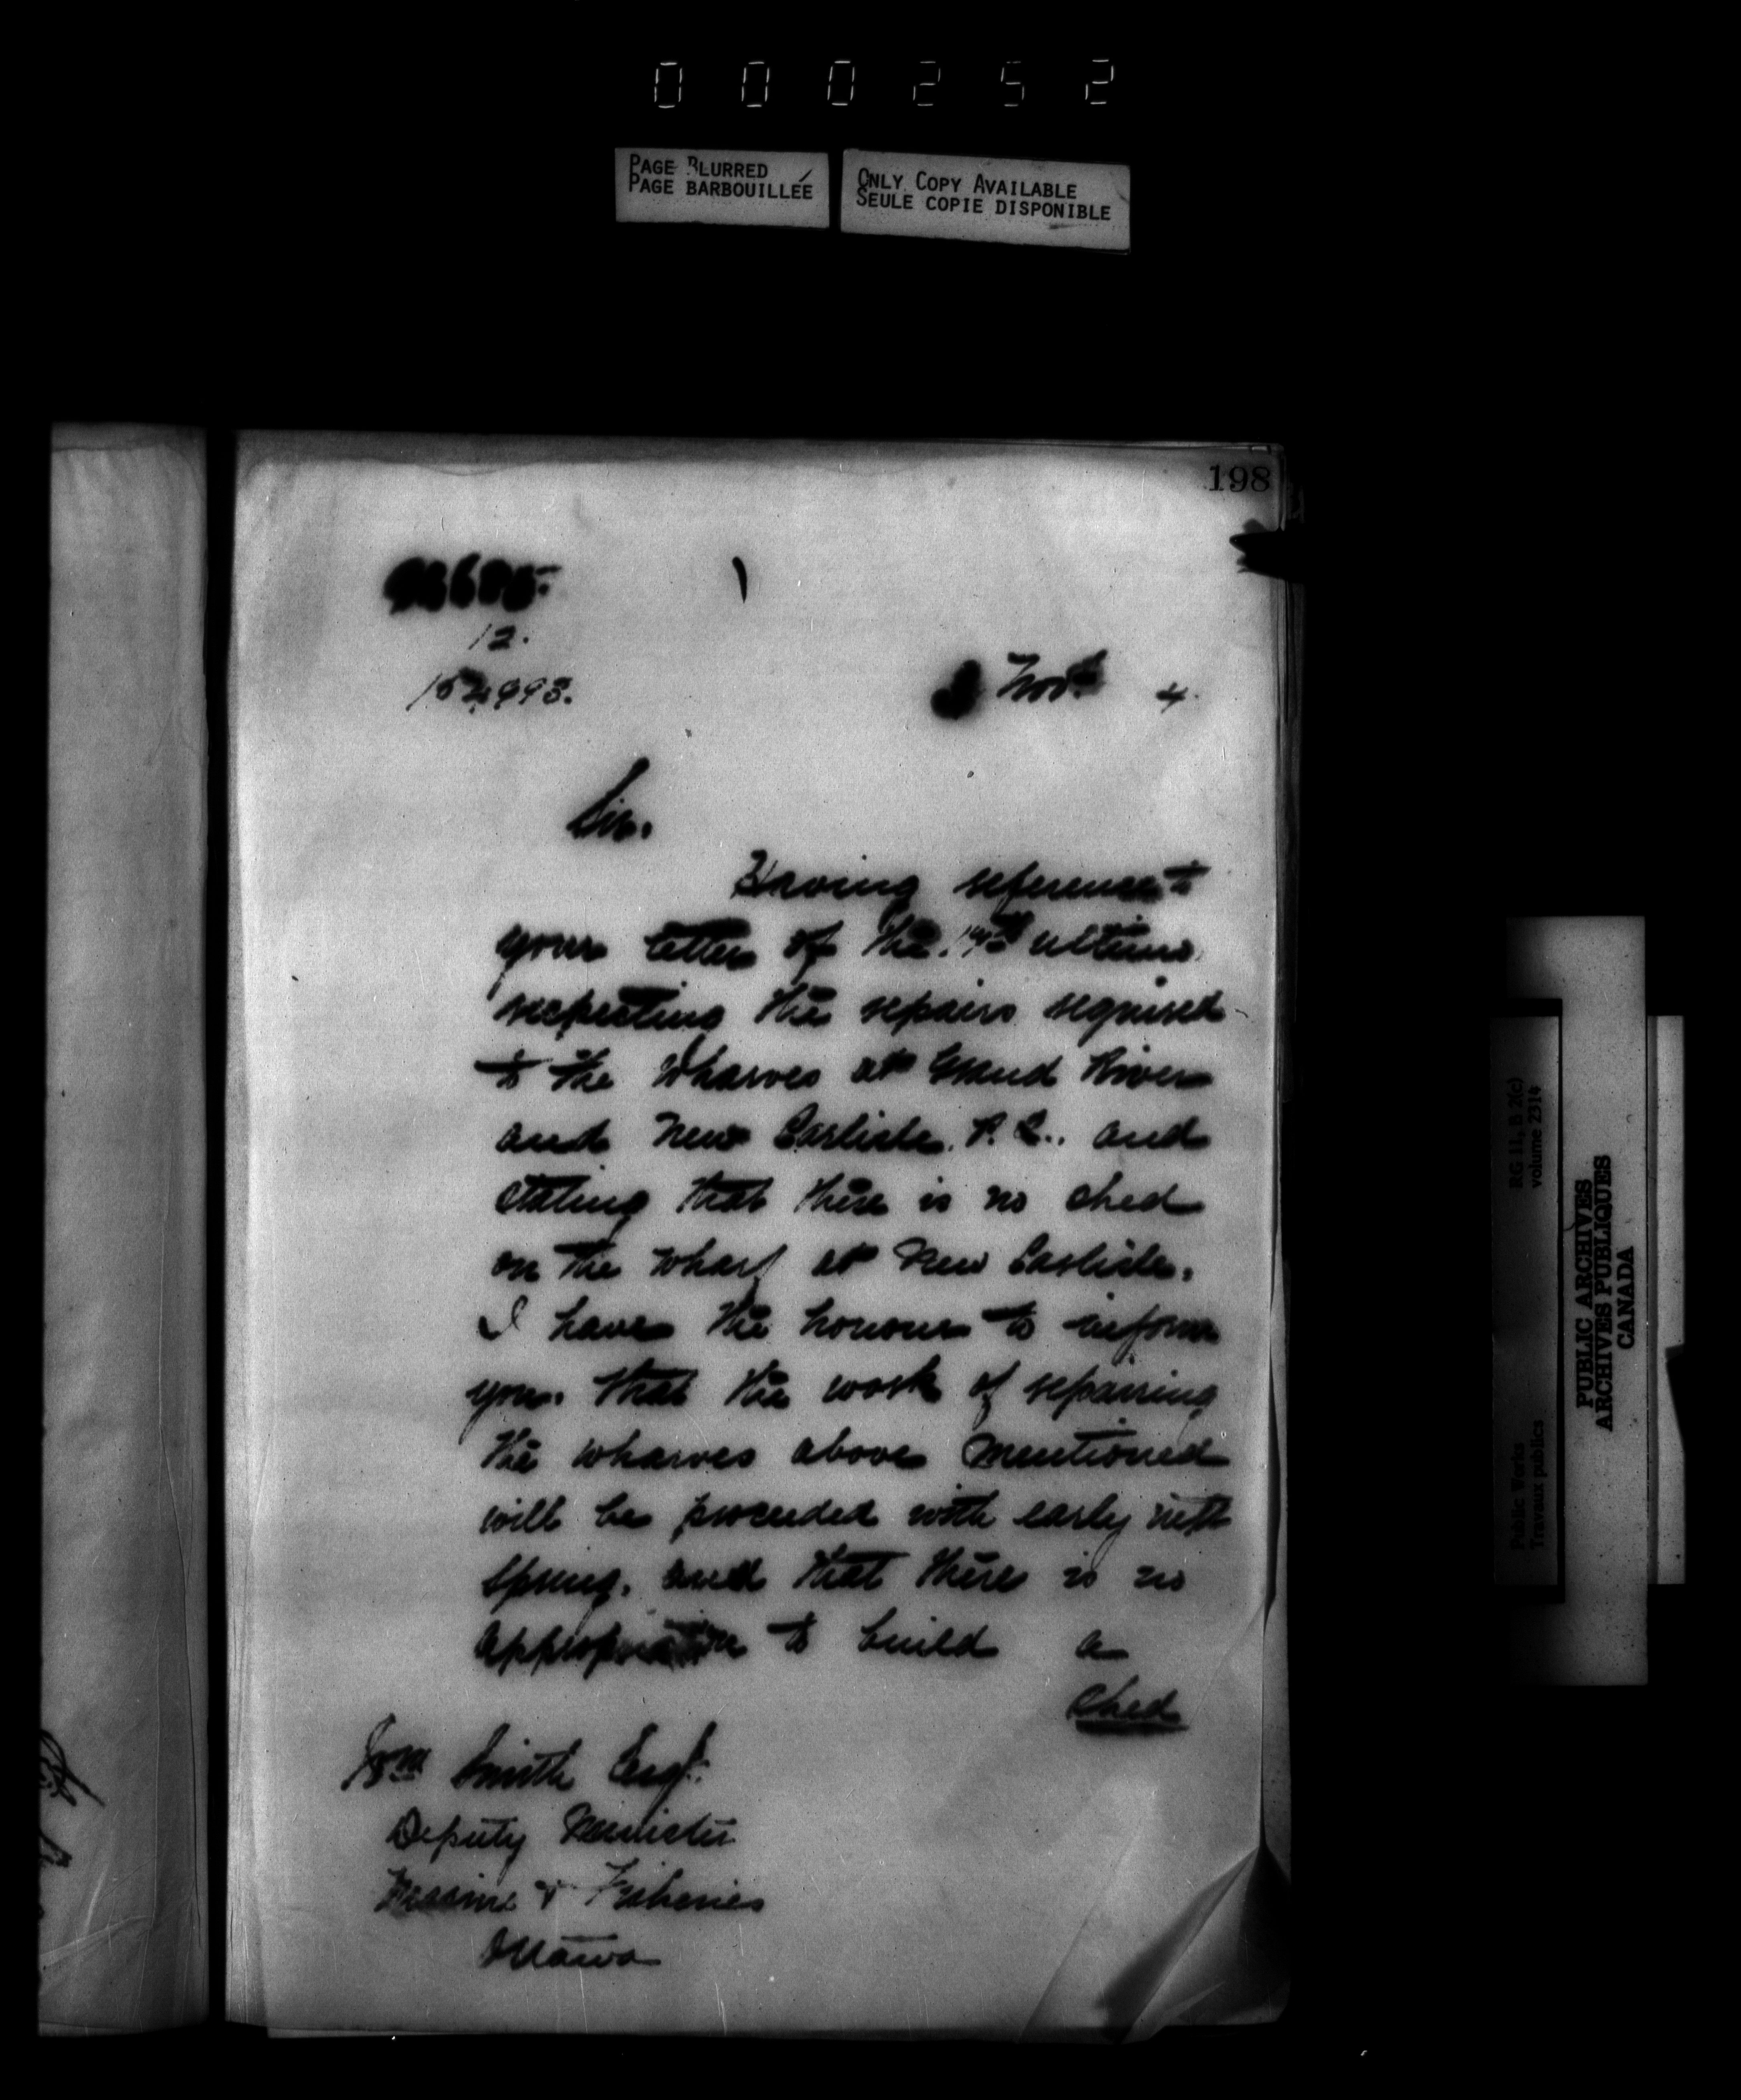 000252
PAGE BLURRED
PAGE BARBOUILLÉE
ONLY COPY AVAILABLE
SEULE COPIE DISPONIBLE
198
12.
Novr 4.
Sir.
Having reference to
your letter of the ultimo
respecting the repairs required
to the Wharves at Grand River
and New Carlisle. P. Q., and
stating that there is no shed
on the wharf at New Carlisle,
I have the honour to inform
you. that the work of repairing
the wharves above mentioned
will be proceeded with early next
spring. and that there is no
appropriation to build a
shed
Wm Smith Esq.
Deputy Minister
Marine & Fisheries
Ottawa
RG 11, B 2(c)
volume 2314
Public Works
Travaux publics
PUBLIC ARCHIVES
ARCHIVES PUBLIQUES
CANADA